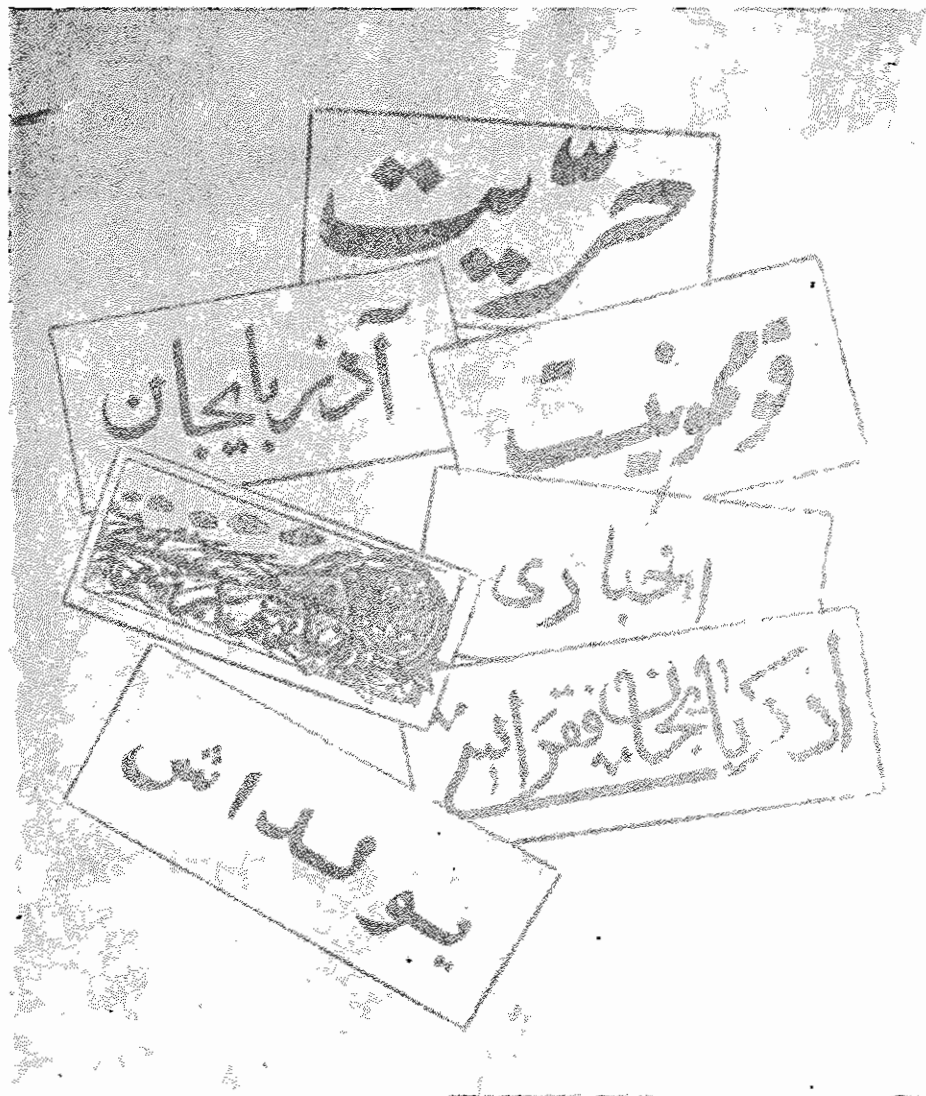 حرّیت
آذربایجان
قومونیست
اخباری
اذربایجان فقراسی
یولداش